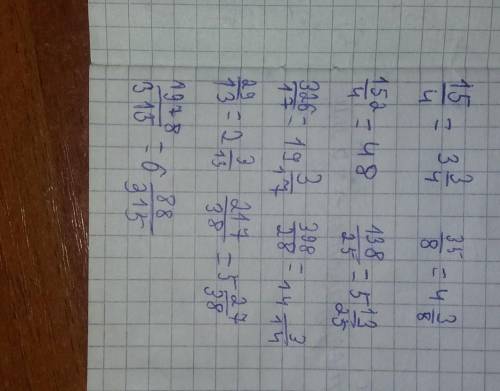 15/4 = 3 3/4 35/8 = 4 3/8
152/4 = 48 138/25 = 5 13/25
326/17 = 19 3/17 398/28 = 14 3/14
29/13 = 2 3/13 217/38 = 5 27/38
1978/315 = 6 88/315